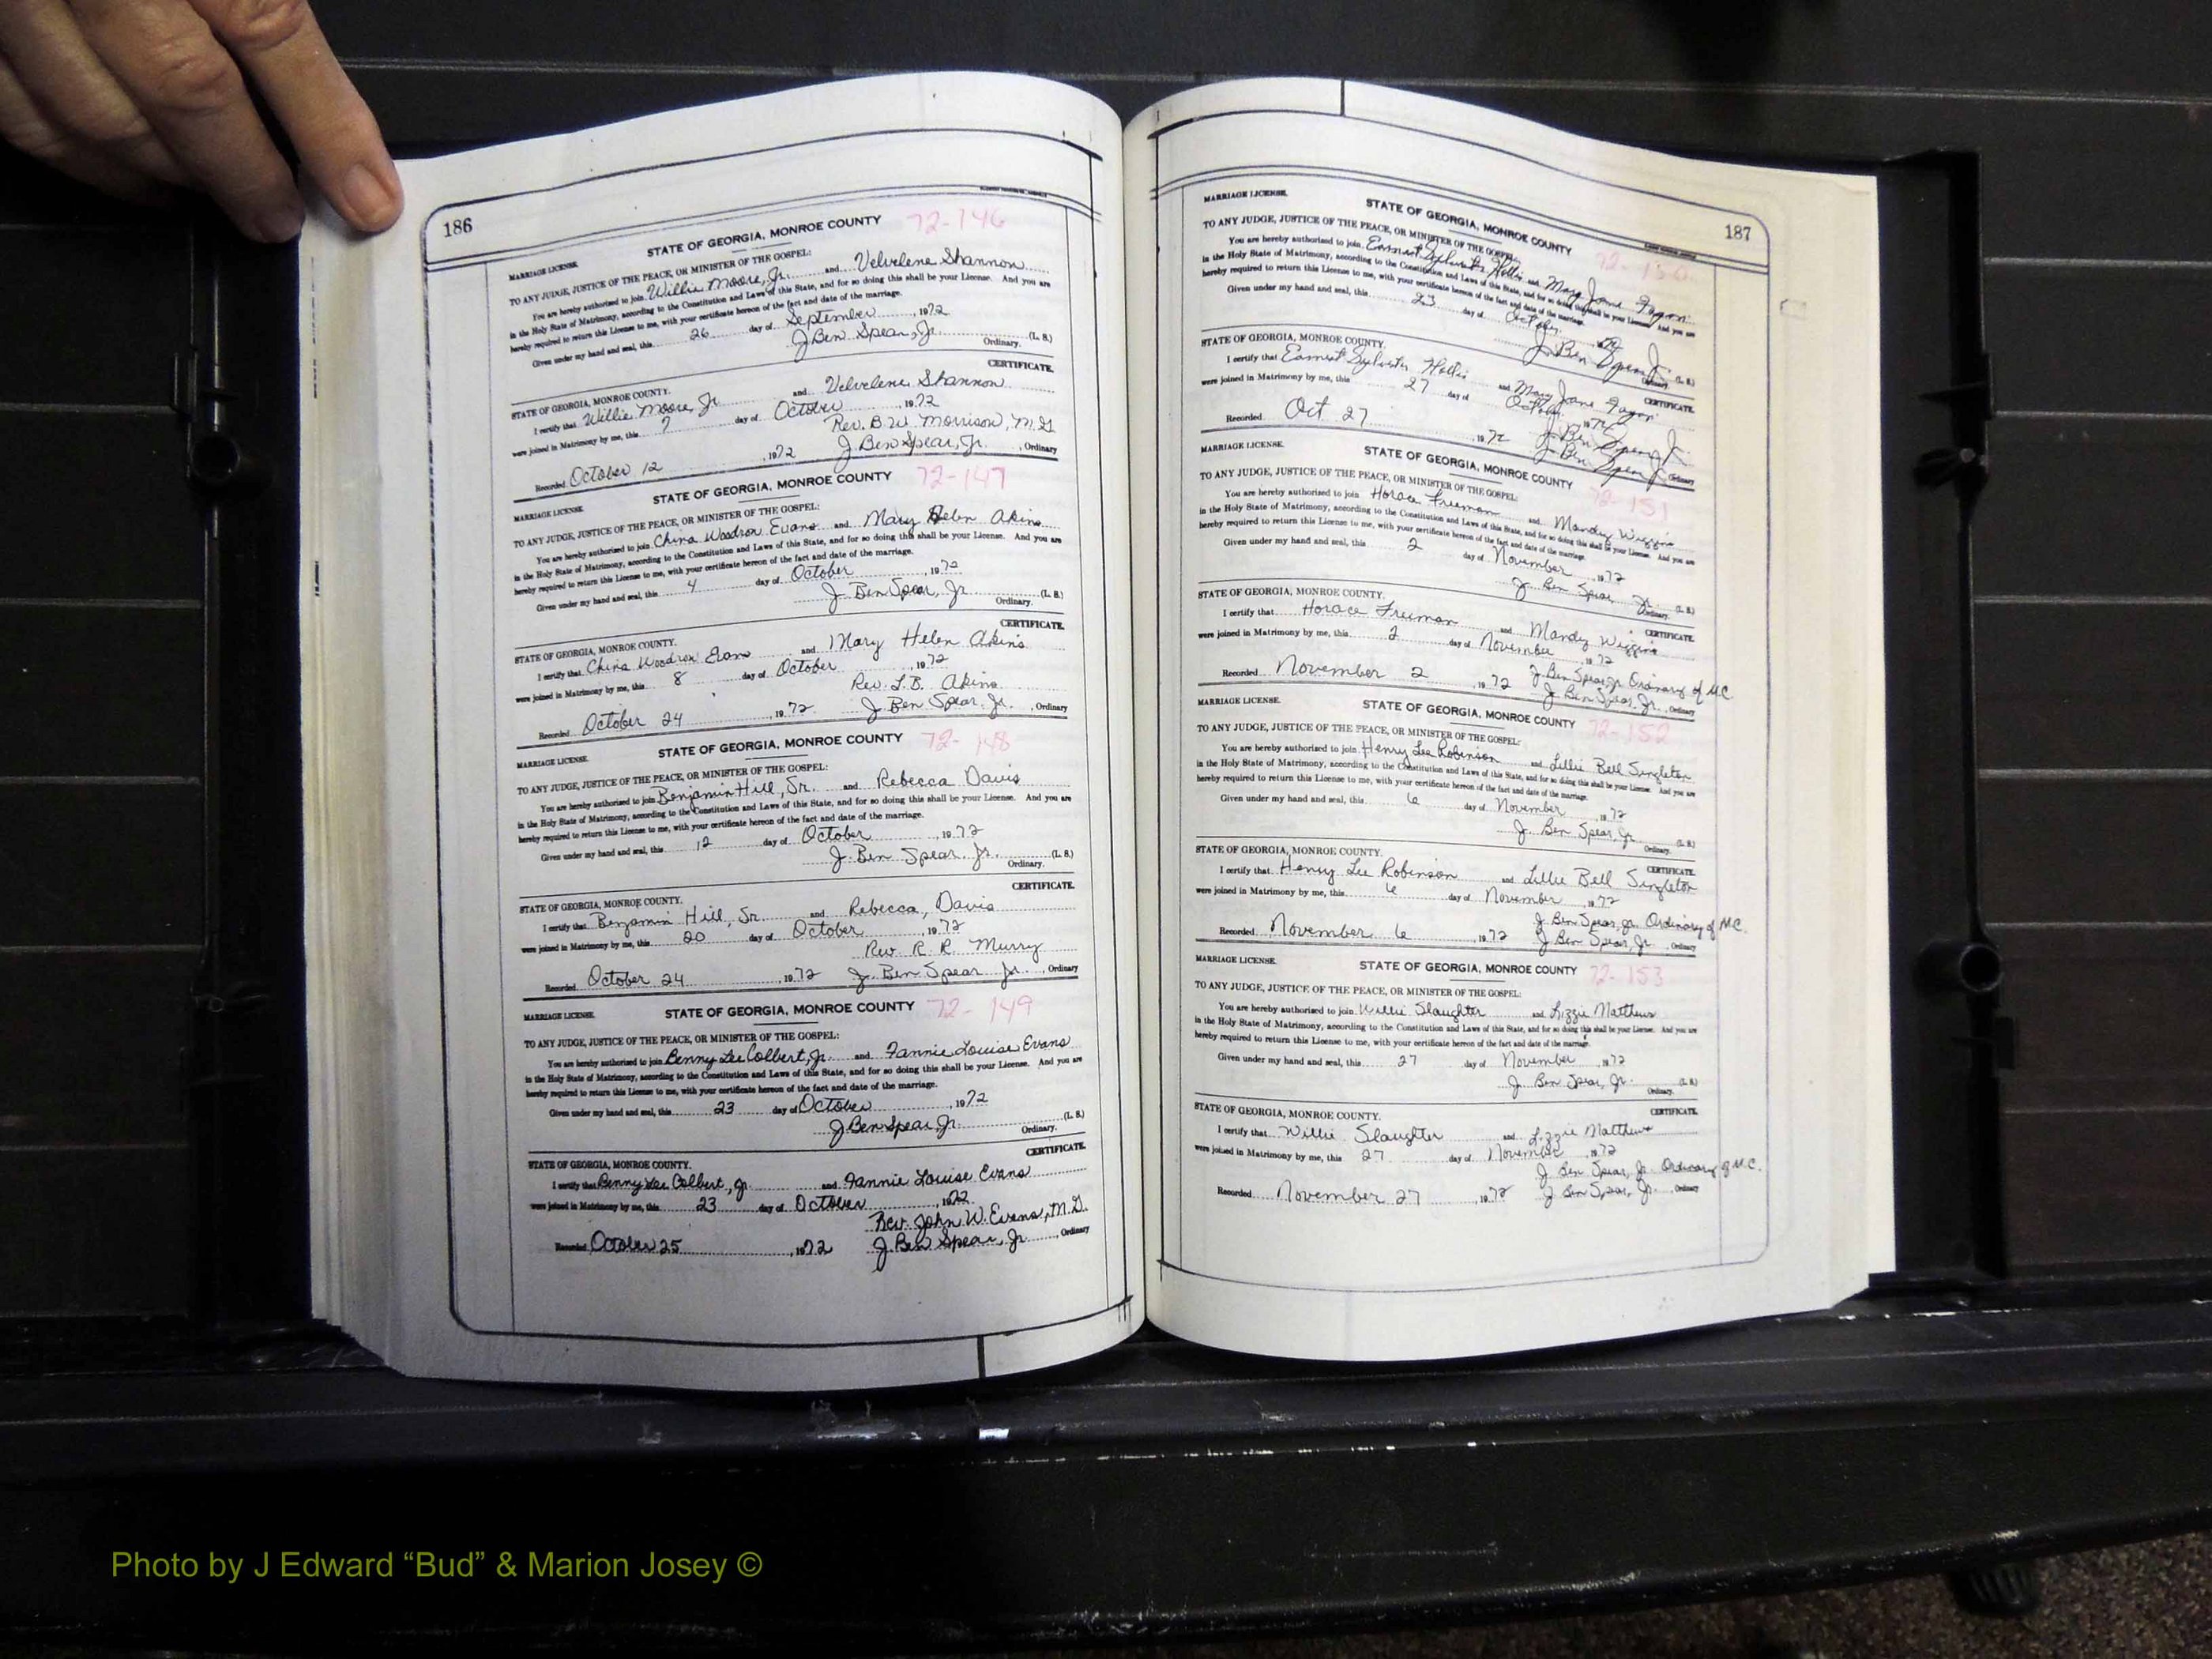 186
STATE OF GEORGIA, MONROE COUNTY 72-146
MARRIAGE LICENSE.
TO ANY JUDGE, JUSTICE OF THE PEACE, OR MINISTER OF THE GOSPEL:
You are hereby authorized to join Willie Moore, Jr. and Velvelene Shannon
in the Holy State of Matrimony, according to the Constitution and Laws of this State, and for so doing this shall be your License. And you are
hereby required to return this License to me, with your certificate hereon of the fact and date of the marriage.
Given under my hand and seal, this 26 day of September, 1972
J Ben Spear, Jr. (L. S.)
Ordinary.
CERTIFICATE.
STATE OF GEORGIA, MONROE COUNTY.
I certify that Willie Moore, Jr and Velvelene Shannon
were joined in Matrimony by me, this 7 day of October 1972
Rev. B.W. Morrison, M.G
Recorded October 12, 1972 J. Ben Spear, Jr., Ordinary
STATE OF GEORGIA, MONROE COUNTY 72-147
MARRIAGE LICENSE.
TO ANY JUDGE, JUSTICE OF THE PEACE, OR MINISTER OF THE GOSPEL:
You are hereby authorized to join China Woodrow Evans and Mary Helen Akins
in the Holy State of Matrimony, according to the Constitution and Laws of this State, and for so doing this shall be your License. And you are
hereby required to return this License to me, with your certificate hereon of the fact and date of the marriage.
Given under my hand and seal, this 4 day of October, 1972
J. Ben Spear, Jr. (L. S.)
Ordinary.
CERTIFICATE.
STATE OF GEORGIA, MONROE COUNTY.
I certify that China Woodrow Evans and Mary Helen Akins
were joined in Matrimony by me, this 8 day of October, 1972
Rev. L.B. Akins
Recorded October 24, 1972 J. Ben Spear, Jr., Ordinary
STATE OF GEORGIA, MONROE COUNTY 72-148
MARRIAGE LICENSE.
TO ANY JUDGE, JUSTICE OF THE PEACE, OR MINISTER OF THE GOSPEL:
You are hereby authorized to join Benjamin Hill, Sr. and Rebecca Davis
in the Holy State of Matrimony, according to the Constitution and Laws of this State, and for so doing this shall be your License. And you are
hereby required to return this License to me, with your certificate hereon of the fact and date of the marriage.
Given under my hand and seal, this 12 day of October, 1972
J. Ben Spear. Jr. (L. S.)
Ordinary.
CERTIFICATE.
STATE OF GEORGIA, MONROE COUNTY.
I certify that Benjamin Hill, Sr. and Rebecca, Davis
were joined in Matrimony by me, this 20 day of October, 1972
Rev. R. R. Murry
Recorded October 24, 1972 J. Ben Spear Jr., Ordinary
STATE OF GEORGIA, MONROE COUNTY 72-149
MARRIAGE LICENSE.
TO ANY JUDGE, JUSTICE OF THE PEACE, OR MINISTER OF THE GOSPEL:
You are hereby authorized to join Benny Lee Colbert, Jr. and Fannie Louise Evans
in the Holy State of Matrimony, according to the Constitution and Laws of this State, and for so doing this shall be your License. And you are
hereby required to return this License to me, with your certificate hereon of the fact and date of the marriage.
Given under my hand and seal, this 23 day of October, 1972
J Ben Spear, Jr. (L. S.)
Ordinary.
CERTIFICATE.
STATE OF GEORGIA, MONROE COUNTY.
I certify that Benny Lee Colbert, Jr. and Fannie Louise Evans
were joined in Matrimony by me, this 23 day of October, 1972
Rev. John W. Evans, M.G.
Recorded October 25, 1972 J. Ben Spear, Jr., Ordinary
187
MARRIAGE LICENSE.
STATE OF GEORGIA, MONROE COUNTY 72-150
TO ANY JUDGE, JUSTICE OF THE PEACE, OR MINISTER OF THE GOSPEL:
You are hereby authorized to join Earnest Sylvester Hollis and Mary Jane Fagan
in the Holy State of Matrimony, according to the Constitution and Laws of this State, and for so doing this shall be your License. And you are
hereby required to return this License to me, with your certificate hereon of the fact and date of the marriage.
Given under my hand and seal, this 23 day of October, 1972
J. Ben Spear Jr (L. S.)
Ordinary.
CERTIFICATE.
STATE OF GEORGIA, MONROE COUNTY.
I certify that Earnest Sylvester Hollis and Mary Jane Fagan
were joined in Matrimony by me, this 27 day of October 1972
J. Ben Spear Jr
Recorded Oct 27, 1972 J. Ben Spear Jr Ordinary
MARRIAGE LICENSE.
STATE OF GEORGIA, MONROE COUNTY 72-151
TO ANY JUDGE, JUSTICE OF THE PEACE, OR MINISTER OF THE GOSPEL:
You are hereby authorized to join Horace Freeman and Mandy Wiggins
in the Holy State of Matrimony, according to the Constitution and Laws of this State, and for so doing this shall be your License. And you are
hereby required to return this License to me, with your certificate hereon of the fact and date of the marriage.
Given under my hand and seal, this 2 day of November, 1972
J. Ben Spear, Jr. (L. S.)
Ordinary.
CERTIFICATE.
STATE OF GEORGIA, MONROE COUNTY.
I certify that Horace Freeman and Mandy Wiggins
were joined in Matrimony by me, this 2 day of November, 1972
J. Ben Spear, Jr Ordinary of M.C.
Recorded November 2, 1972 J. Ben Spear, Jr., Ordinary
MARRIAGE LICENSE.
STATE OF GEORGIA, MONROE COUNTY 72-152
TO ANY JUDGE, JUSTICE OF THE PEACE, OR MINISTER OF THE GOSPEL:
You are hereby authorized to join Henry Lee Robinson and Lillie Bell Singleton
in the Holy State of Matrimony, according to the Constitution and Laws of this State, and for so doing this shall be your License. And you are
hereby required to return this License to me, with your certificate hereon of the fact and date of the marriage.
Given under my hand and seal, this 6 day of November, 1972
J. Ben Spear, Jr (L. S.)
Ordinary.
CERTIFICATE.
STATE OF GEORGIA, MONROE COUNTY.
I certify that Henry Lee Robinson and Lillie Bell Singleton
were joined in Matrimony by me, this 6 day of November, 1972
J. Ben Spear, Jr. Ordinary of M.C.
Recorded November 6, 1972 J Ben Spear, Jr., Ordinary
MARRIAGE LICENSE.
STATE OF GEORGIA, MONROE COUNTY 72-153
TO ANY JUDGE, JUSTICE OF THE PEACE, OR MINISTER OF THE GOSPEL:
You are hereby authorized to join Willie Slaughter and Lizzie Matthews
in the Holy State of Matrimony, according to the Constitution and Laws of this State, and for so doing this shall be your License. And you are
hereby required to return this License to me, with your certificate hereon of the fact and date of the marriage.
Given under my hand and seal, this 27 day of November, 1972
J. Ben Spear, Jr. (L. S.)
Ordinary.
CERTIFICATE.
STATE OF GEORGIA, MONROE COUNTY.
I certify that Willie Slaughter and Lizzie Matthews
were joined in Matrimony by me, this 27 day of November, 1972
J. Ben Spear, Jr. Ordinary of M.C.
Recorded November 27, 1972 J Ben Spear, Jr., Ordinary
Photo by J Edward “Bud” & Marion Josey ©